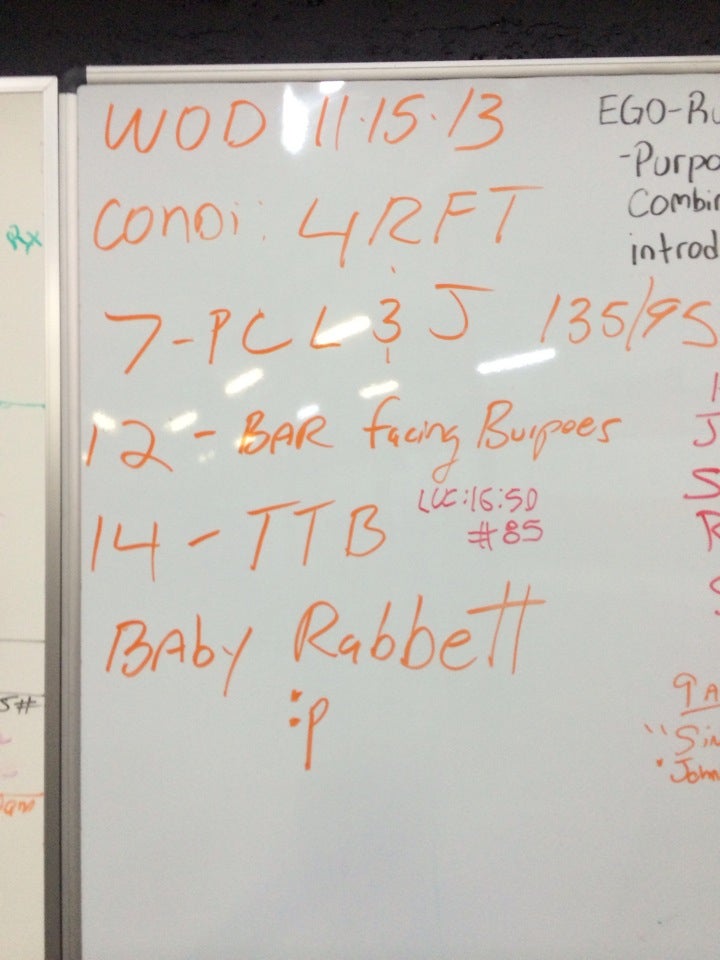 WOD 11.15.13
Condi: 4 RFT
7-PCL & J 135/95
12 - BAR facing Burpees
14 - TTB
LUC:16:50
#85
BAby Rabbett
:p
EGO-Ru
-Purpo
Combin
introd
J
S
R
S
9 A
"Sin
John
Rx
5#